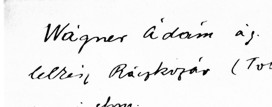 Wágner Ádám ág.
lelkész, Ráczkozár (Tol